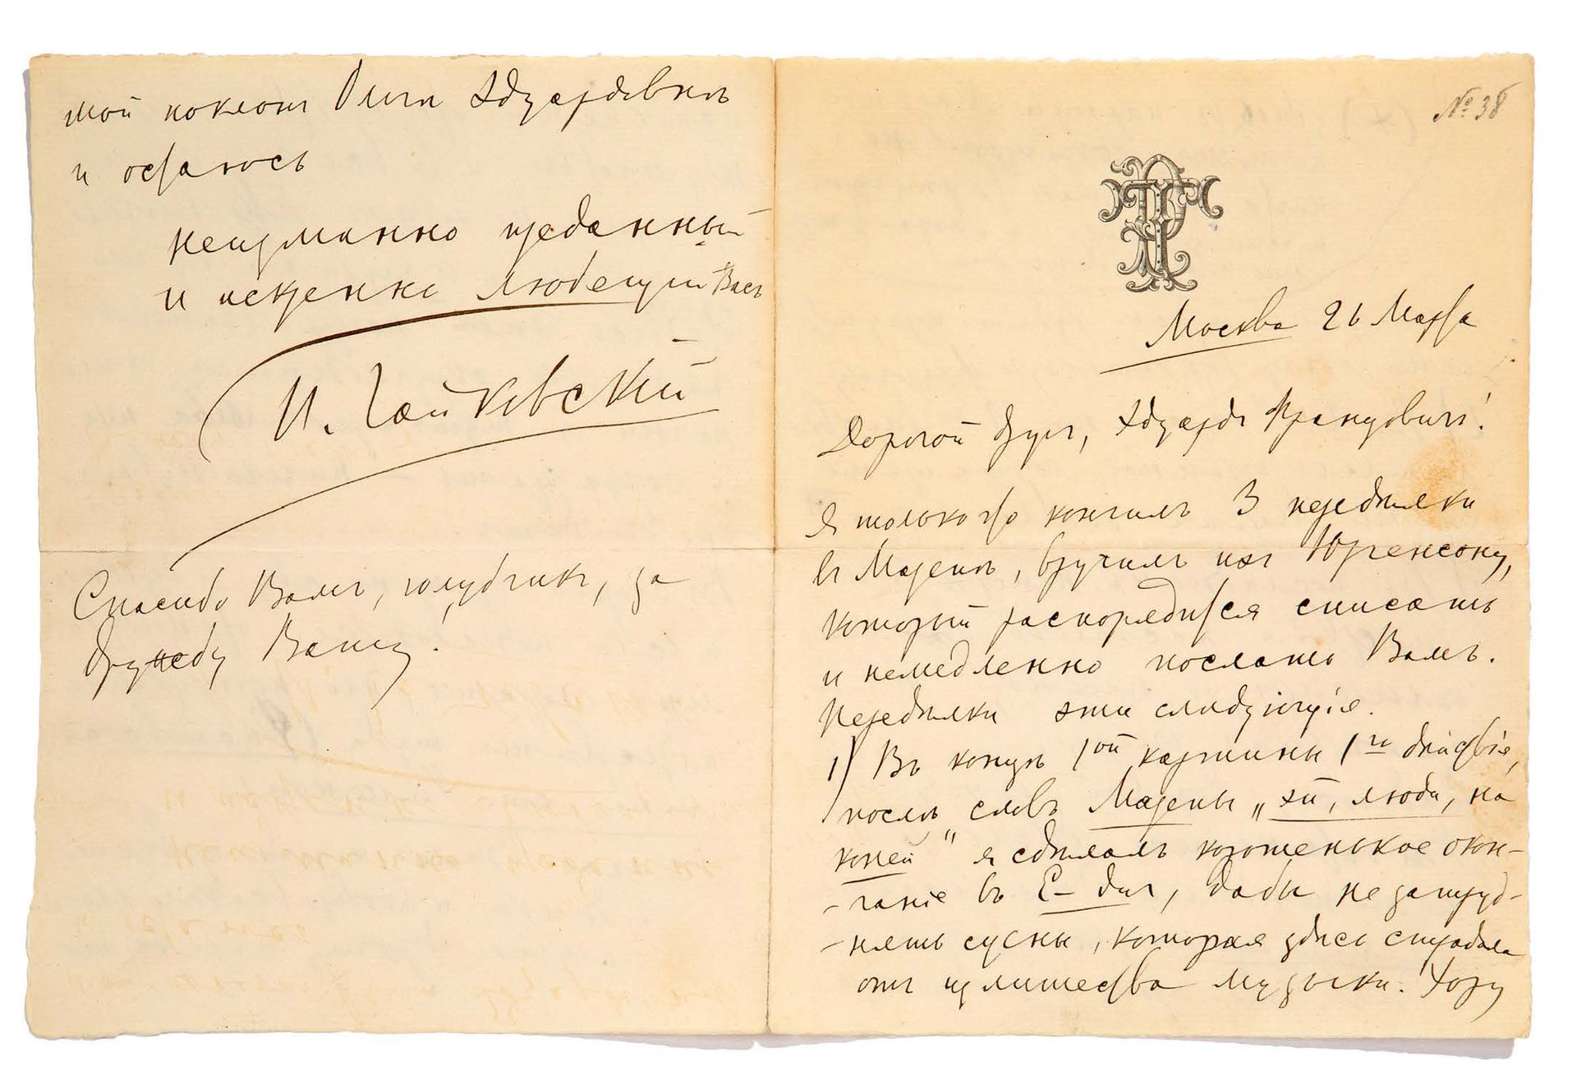 мой поклонъ Ольгѣ Эдуардовнѣ
и остаюсь
неизмѣнно преданный
и искренно любящій Васъ
П. Чайковскій
Спасибо Вамъ, голубчикъ, за
дружбу Вашу!
№ 38
Москва 26 Марта
Дорогой другъ, Эдуардъ Францовичъ!
Я только что кончилъ 3 передѣлки
въ Мазепѣ, вручилъ ихъ Юргенсону,
который распорядится списать
и немедленно послать Вамъ.
Передѣлки эти слѣдующія.
1) Въ концѣ 1ой картины 1го дѣйствія,
послѣ словъ Мазепы „эй, люди, на
коней" я сдѣлалъ хорошенькое окон-
-чаніе въ E-dur, дабы не затруд-
-нять сцены, которая здѣсь страдала
отъ излишества музыки. Хору